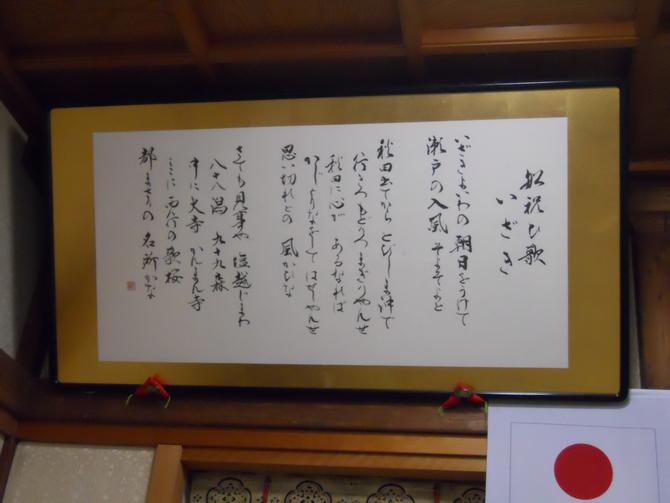 船祝ひ歌
いざき
いざきまわの朝日をうけて
瀬戸の入風そよそよと
秋田出てから とびしま沖で
行きつもどりつまぎりやんせ
秋田に心が あるなれば
かじ をして はせやんせ
思い切れとの 風かひな
さても見事や 塩越じまわ
八十八潟 九十九森
中に大寺 かんまん寺
ここに西行の歌桜
都まさりの 名所かな